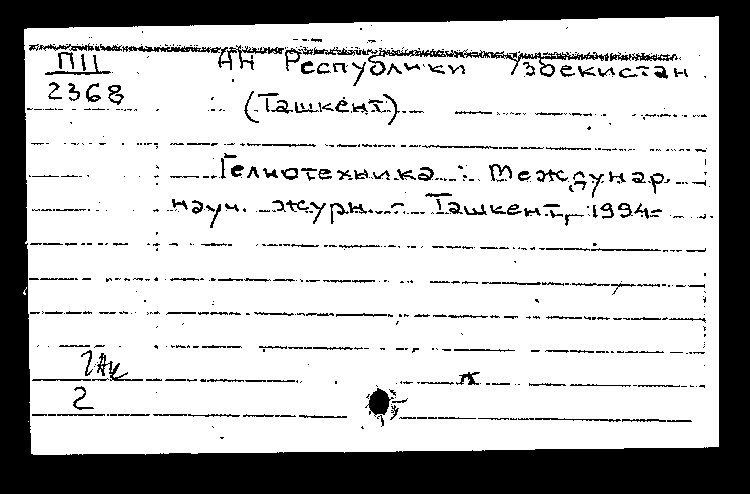 ПII
2368
АН Республики Узбекистан
(Ташкент)
Гелиотехника : Междунар.
науч. журн. - Ташкент, 1994-
2